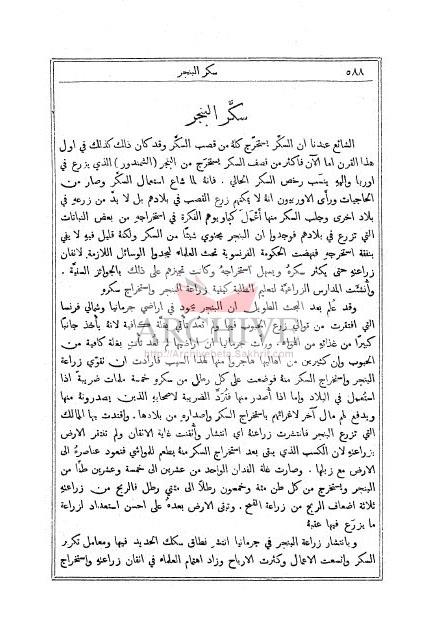 ٥٨٨
سكر البنجر
سكَّر البنجر
الشائع عندنا ان السكَّر يستخرَج كلهُ من قصب السكَّر وقد كان ذلك كذلك في اول
هذا القرن اما الآن فاكثر من نصف السكر يستخرج من البنجر (الشمندور) الذي يزرع في
اوربا واليهِ ينسب رخص السكر الحالي. فانهُ لما شاع استعمال السكَّر وصار من
الحاجيات ورأَى الاوربيون انهُ لا يمكنهم زرع القصب في بلادهم بل لا بدَّ من زرعهِ في
بلاد اخرى وجلب السكر منها أَعْمَل كياويوهم الفكرة في استخراجهِ من بعض النباتات
التي تزرع في بلادهم فوجدوا ان البنجر يحتوي شيئًا من السكر ولكنهُ قليل فيهِ لا يفي
بنفقة استخراجهِ فنهضت الحكومة الفرنسوية تحث العلماء ليجدوا الوسائل اللازمة لاتقان
زراعتهِ حتى يكثر سكرهُ ويسهل استخراجهُ وكانت تجيزهم على ذلك بالجوائز السنيَّة.
وأُنشئت المدارس الزراعيَّة لتعليم الطلبة كيفية زراعة البنجر واستخراج سكرهِ
وقد عُلِم بعد البحث الطويل ان البنجر يجود في اراضي جرمانيا وشمالي فرنسا
التي افتقرت من توالي زرع الحبوب فيها ولم تعد تأتي بغلَّة كافية لانهُ يأخذ جانبًا
كبيرًا من غذائهِ من الهواء. ورأت جرمانيا ان اراضيها لم تعد تأتي بغلة كافية من
الحبوب وان كثيرين من اهاليها هاجروا منها لهذا السبب فارادت ان تقوّي زراعة
البنجر واستخراج السكر منهُ فوضعت على كل رطل من سكرهِ خمسة ملمات ضريبةً اذا
استُعمل في البلاد واما اذا أصدر منها فتُرَدُّ الضريبة لاصحابهِ الذين يصدرونهُ منها
ويدفع لهم مال آخر لاغرائهم باستخراج السكر واصدارهِ من بلادها. واقتدت بها المالك
التي تزرع البنجر فانتشرت زراعتهُ اي انتشار وأُتقنت غاية الاتقان ولم تفتقر الارض
بزراعتهِ لان الكسب الذي يبقى بعد استخراج السكر منهُ يطعم للمواشي فتعود عناصرهُ الى
الارض مع زبلها. وصارت غلة الفدان الواحد من عشرين الى خمسة وعشرين طنًّا من
البنجر ويستخرج من كل طن مئة وخمسون رطلاً الى مئتي رطل فالربح من زراعتهِ
ثلاثة اضعاف الربح من زراعة القمح. وتبقى الارض بعدهُ على احسن استعداد لزراعة
ما يزرع فيها عقبهُ
وبانتشار زراعة البنجر في جرمانيا انتشر نطاق سكك الحديد فيها ومعامل تكرير
السكر واتسعت الاعمال وكثرت الارباح وزاد اهتمام العلماء في اتقان زراعتهِ واستخراج
ARCHIVE